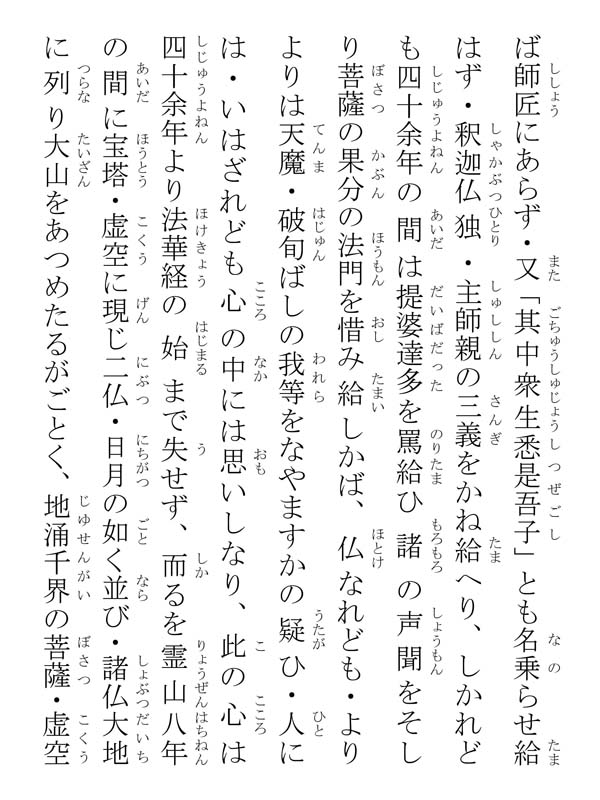 ば師匠にあらず・又「其中衆生悉是吾子」とも名乗らせ給
はず・釈迦仏独・主師親の三義をかね給へり、しかれど
も四十余年の間は提婆達多を罵給ひ諸の声聞をそし
り菩薩の果分の法門を惜み給しかば、仏なれども・より
よりは天魔・破旬ばしの我等をなやますかの疑ひ・人に
は・いはざれども心の中には思いしなり、此の心は
四十余年より法華経の始まで失せず、而るを霊山八年
の間に宝塔・虚空に現じ二仏・日月の如く並び・諸仏大地
に列り大山をあつめたるがごとく、地涌千界の菩薩・虚空